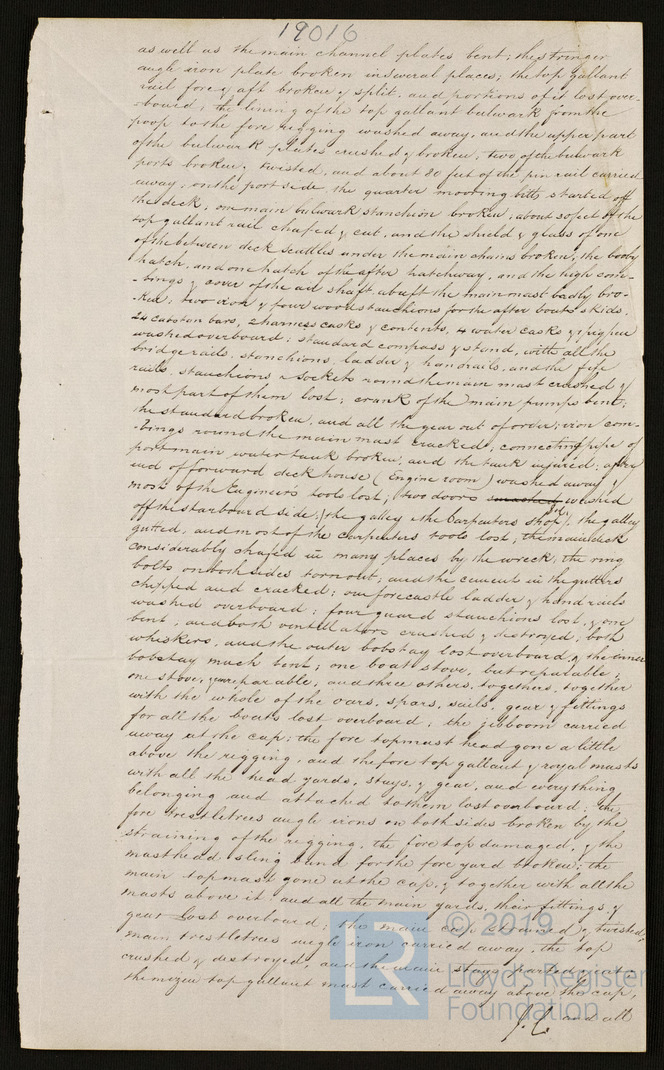 19016
as well as the main channel plates bent; the stringer
angle iron plate broken in several places; the top gallant
rail fore & aft broken & split, and portions of it lost over-
-board; the lining of the top gallant bulwark from the
poop to the fore rigging washed away, and the upper part
of the bulwark plates crushed & broken, two of the bulwark
ports broken, twisted, and about 20 feet of the pin rail carried
away, on the port side, the quarter mooring bitts started off
the deck, one main bulwark stanchion broken; about 30 feet of the
top gallant rail chafed & cut, and the shield & glass of one
of the between deck scuttles under the main chains broken, the booby
hatch, and one hatch of the after hatchway, and the high com-
-bings & cover of the air shaft abaft the mainmast badly bro-
-ken; two iron & four wood stanchions for the after boats skids,
24 capstan bars, 2 harness casks & contents, 4 water casks &
washed overboard; standard compass & stand, with all the
bridge rails, stanchions, ladder & handrails, and the fife
rails, stanchions & sockets round the main mast crushed &
most part of them lost; crank of the main pumps bent;
the standard broken, and all the gear out of order; iron com-
-bings round the main mast cracked; connecting pipe of
port main water tank broken, and the tank injured; after
end of forward deck house (Engine room) washed away &
most of the Engineers tools lost; two doors smashed washed
off the starboard side; the galley & the Carpenters shop; the galley
gutted, and most of the carpenters tools lost; the main deck
considerably chafed in many places by the wreck, the ring
bolts on both sides torn out; and the cement in the gutters
chipped and cracked; one forecastle ladder & hand rails
washed overboard; four guard stanchions lost, & one
bent; and both ventilators crushed & destroyed; both
whiskers, and the outer bobstay lost overboard, & the inner
bobstay much bent; one boat stove, but repairable,
one stove, unrepairable, and three others, together, together
with the whole of the oars, spars, sails, gear & fittings
for all the boats lost overboard; the jibboom carried
away at the cap; the fore topmast head gone a little
above the rigging, and the fore top gallant & royal masts
with all the head yards, stays, & gear, and everything
belonging and attached to them lost overboard; the
fore trestletrees angle irons on both sides broken by the
straining of the rigging, the fore top damaged, & the
masthead sling band for the fore yard broken; the
main topmast gone at the cap, & together with all the
masts above it and all the main yards, their fittings &
gear lost overboard; the main cap strained & twisted,
main trestletrees angle iron carried away, the top
crushed & destroyed, and the main stays parted;
the mizen top gallant mast carried away above the cap,
and all
© 2019
Lloyd's Register
Foundation
LR